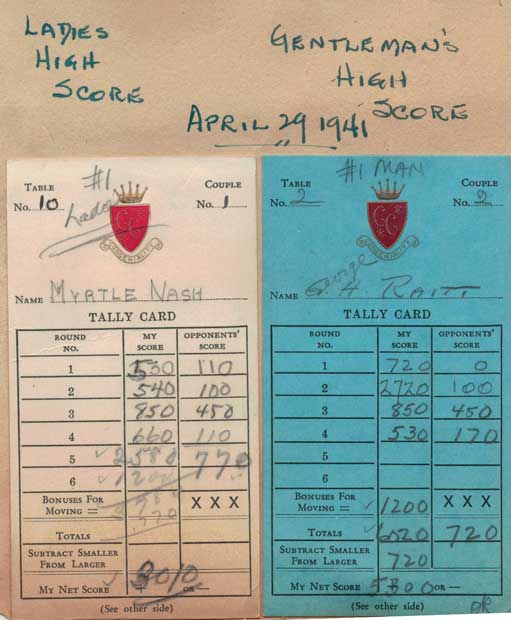 LADIES
HIGH
SCORE
GENTLEMAN'S
HIGH
SCORE
APRIL 29 1941
#1
TABLE
No. 10
COUPLE
No. 1
CONGENIALITY
NAME MYRTLE NASH
TALLY CARD
ROUND NO. MY SCORE OPPONENTS' SCORE
1 530 110
2 540 100
3 850 450
4 660 110
5 2580 770
6 1200
BONUSES FOR MOVING = X X X
770
TOTALS
SUBTRACT SMALLER FROM LARGER
MY NET SCORE + 3010 OR —
(See other side)
#1 MAN
TABLE
No. 2
COUPLE
No. 2
CONGENIALITY
George
NAME G. H. RAITT
TALLY CARD
ROUND NO. MY SCORE OPPONENTS' SCORE
1 720 0
2 2720 100
3 850 450
4 530 170
5
6
BONUSES FOR MOVING = 1200 X X X
TOTALS 6020 720
SUBTRACT SMALLER FROM LARGER 720
MY NET SCORE 5300 OR —
(See other side)
OK